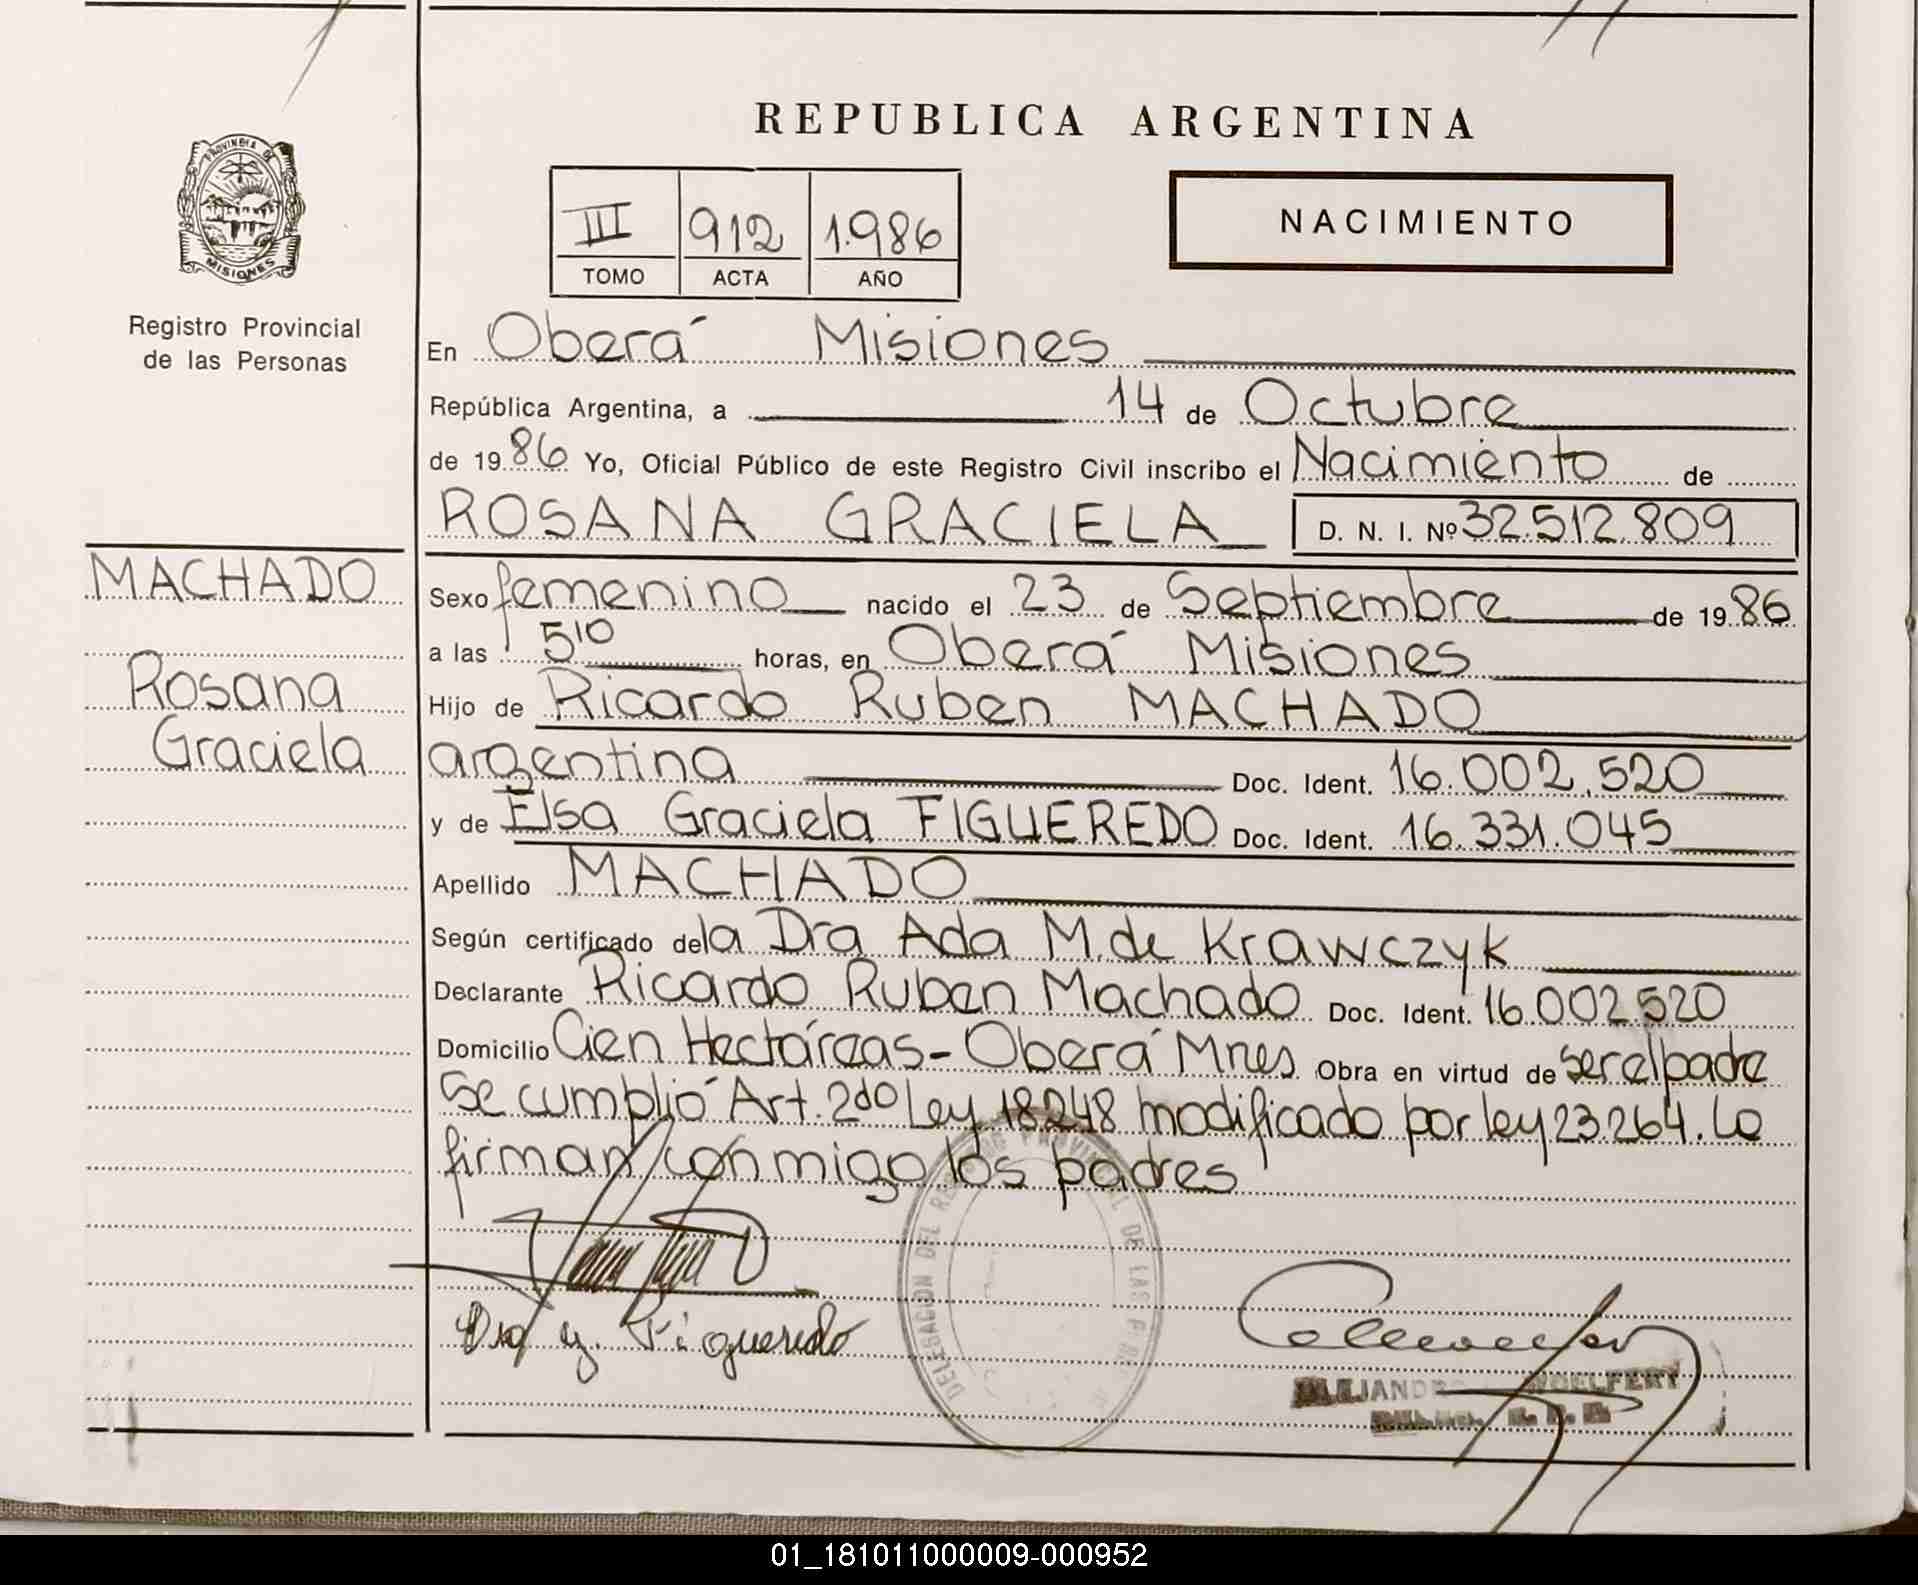 REPUBLICA ARGENTINA
PROVINCIA DE
MISIONES
Registro Provincial
de las Personas
III 912 1.986
TOMO ACTA AÑO
NACIMIENTO
En Oberá Misiones
República Argentina, a 14 de Octubre
de 1986 Yo, Oficial Público de este Registro Civil inscribo el Nacimiento de
ROSANA GRACIELA D. N. I. Nº 32.512.809
MACHADO
Rosana
Graciela
Sexo femenino nacido el 23 de Septiembre de 1986
a las 5¹⁰ horas, en Oberá Misiones
Hijo de Ricardo Ruben MACHADO
argentina Doc. Ident. 16.002.520
y de Elsa Graciela FIGUEREDO Doc. Ident. 16.331.045
Apellido MACHADO
Según certificado de la Dra Ada M. de Krawczyk
Declarante Ricardo Ruben Machado Doc. Ident. 16.002.520
Domicilio Cien Hectáreas - Oberá Mnes Obra en virtud de ser el padre
Se cumplió Art. 2do Ley 18248 modificado por ley 23.264. Lo
firman conmigo los padres
DELEGACION DEL REGISTRO PROVINCIAL DE LAS
Figueredo
01_181011000009-000952